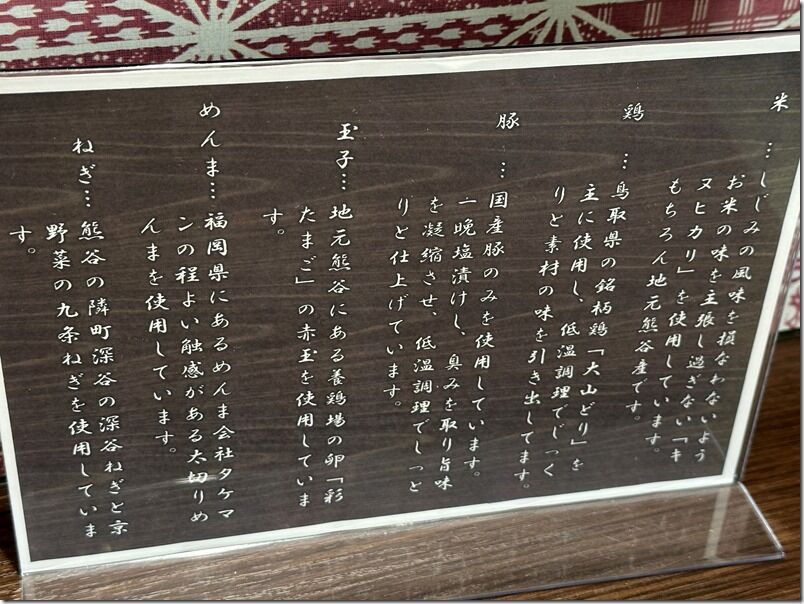 米…しじみの風味を損なわないよう
お米の味を主張し過ぎない「キ
ヌヒカリ」を使用しています。
もちろん地元熊谷産です。
鶏…鳥取県の銘柄鶏「大山どり」を
主に使用し、低温調理でじっく
りと素材の味を引き出してます。
豚…国産豚のみを使用しています。
一晩塩漬けし、臭みを取り旨味
を凝縮させ、低温調理でしっと
りと仕上げています。
玉子…地元熊谷にある養鶏場の卵「彩
たまご」の赤玉を使用していま
す。
めんま…福岡県にあるめんま会社タケマ
ンの程よい触感がある太切りめ
んまを使用しています。
ねぎ…熊谷の隣町深谷の深谷ねぎと京
野菜の九条ねぎを使用していま
す。